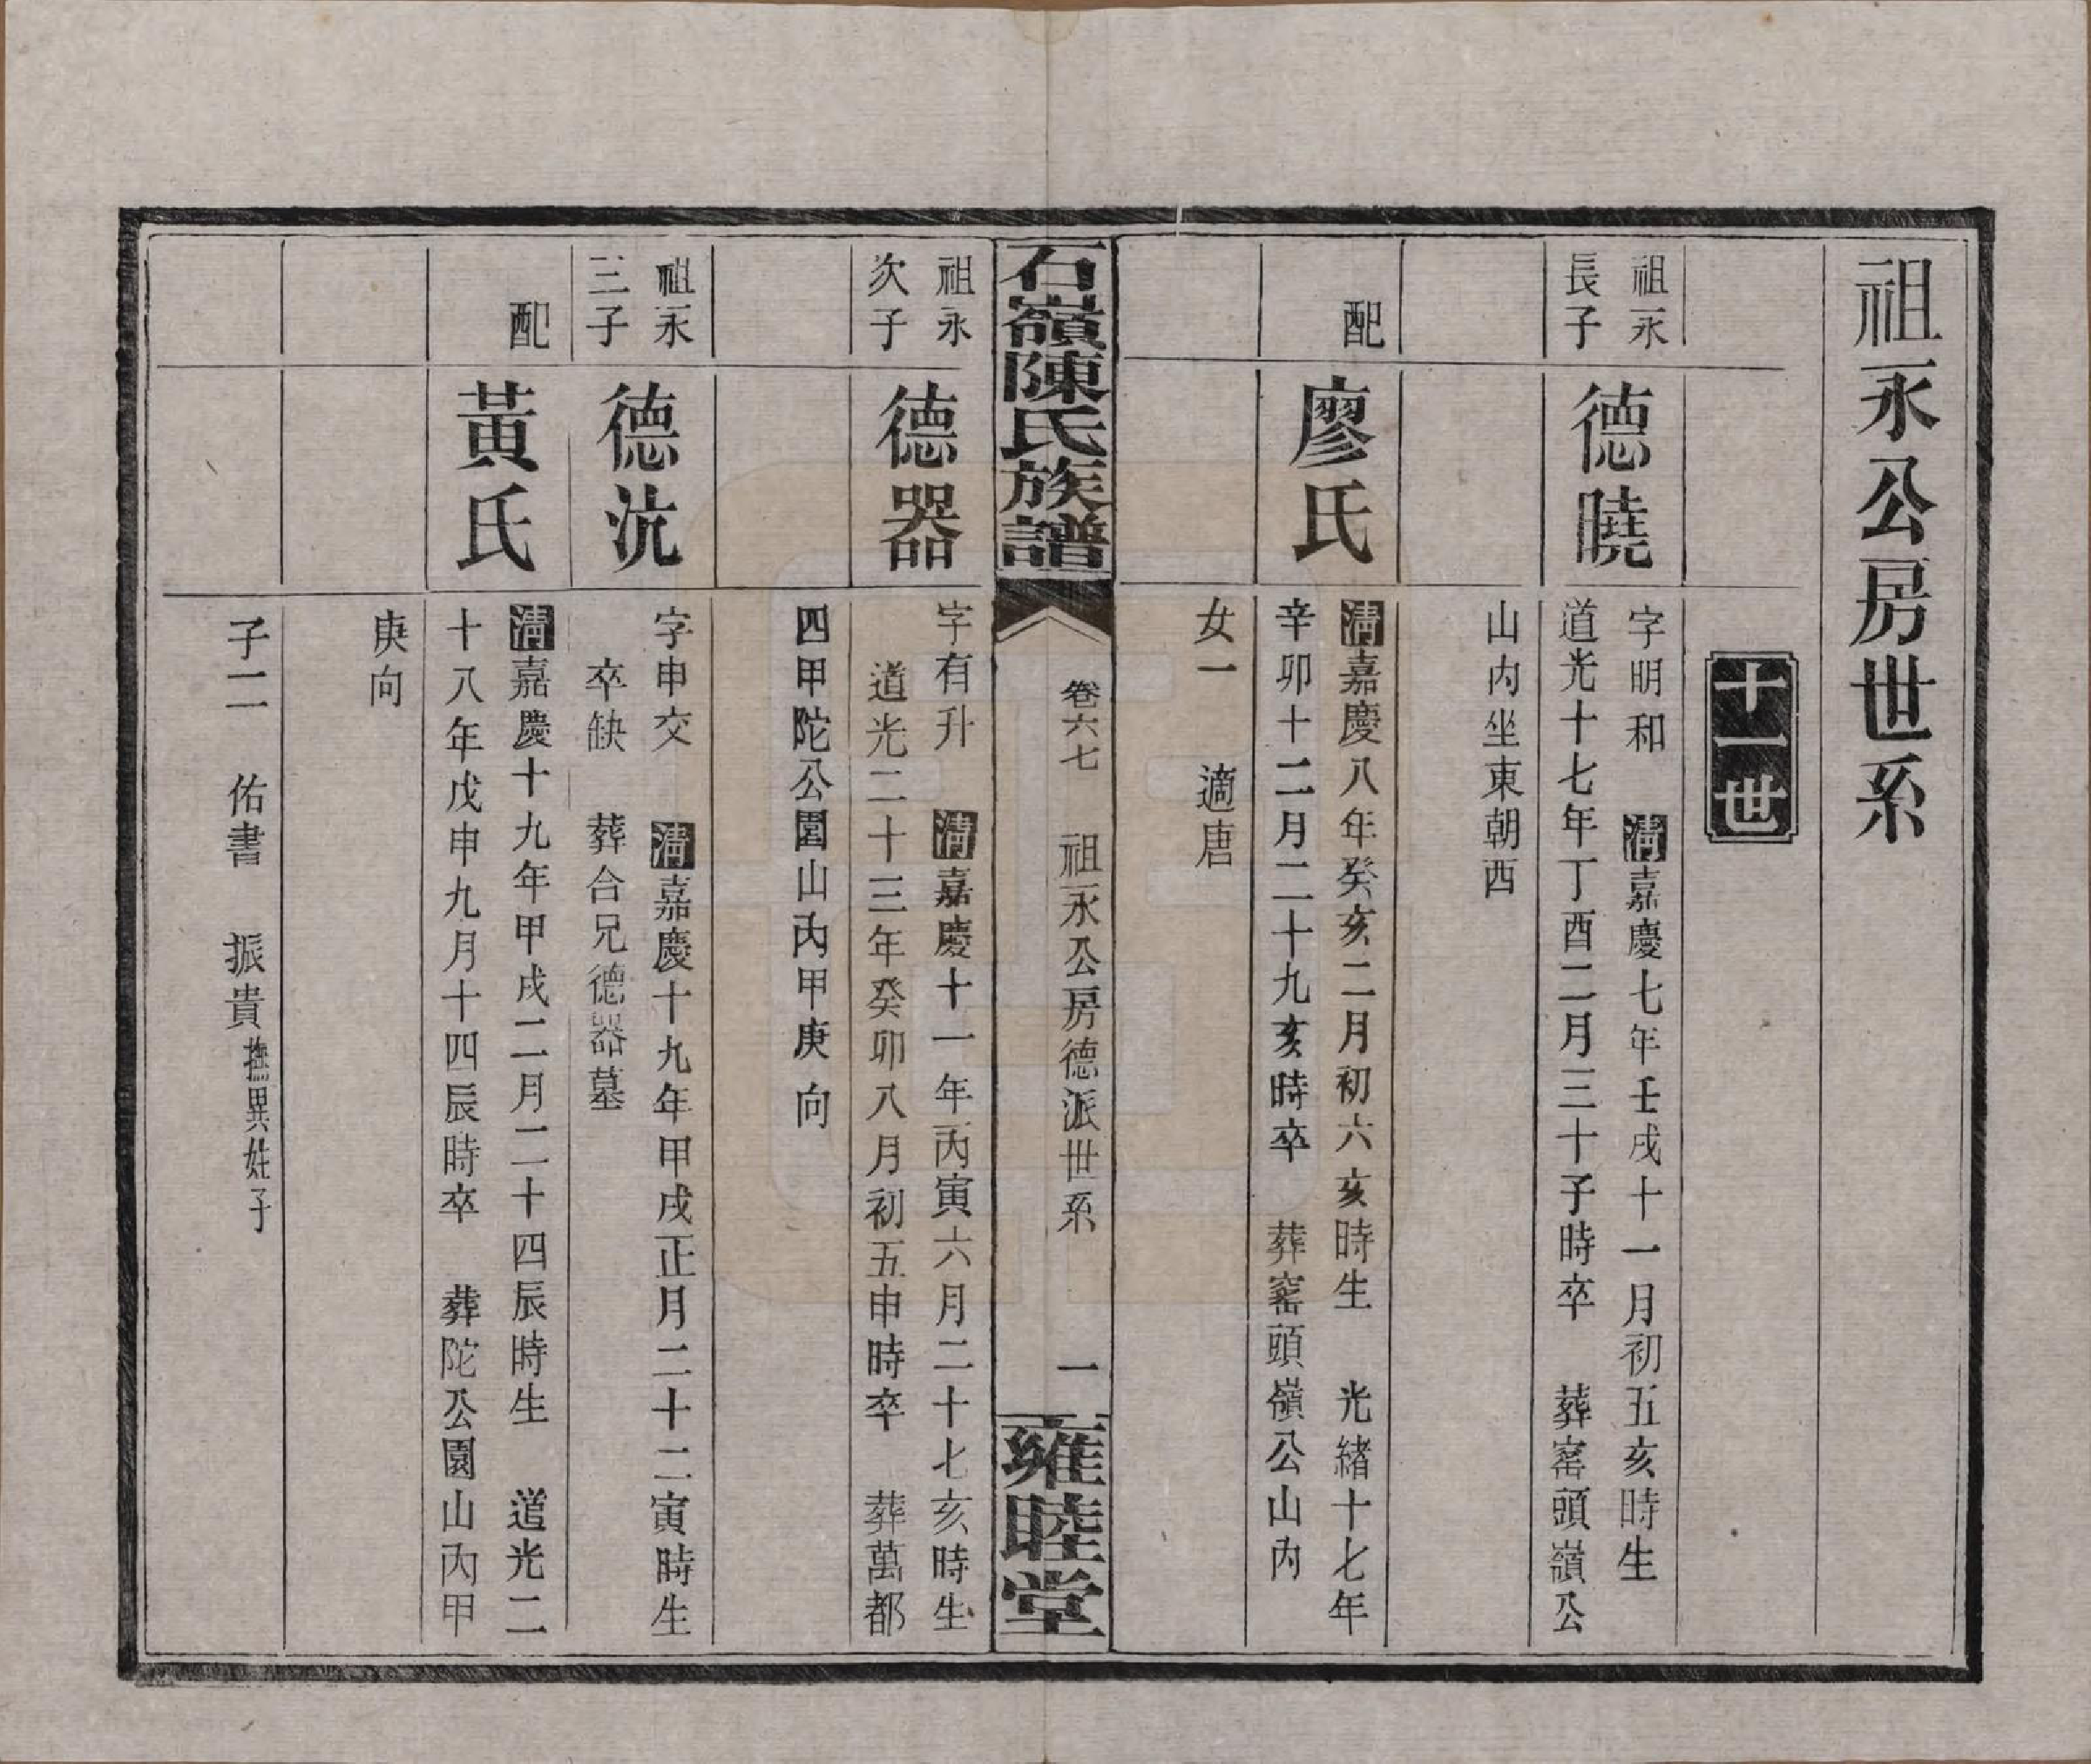 祖永公房世系
十一世
祖永
長子
德曉
字明和 清嘉慶七年壬戌十一月初五亥時生
道光十七年丁酉二月三十子時卒 葬窰頭嶺公
山內坐東朝西
配
廖氏
清嘉慶八年癸亥二月初六亥時生 光緒十七年
辛卯十二月二十九亥時卒 葬窰頭嶺公山內
女一 適唐
石嶺陳氏族譜
卷六七 祖永公房德派世系 一
雍睦堂
祖永
次子
德器
字有升 清嘉慶十一年丙寅六月二十七亥時生
道光二十三年癸卯八月初五申時卒 葬萬都
四甲陀公園山內甲庚向
祖永
三子
德沆
字申交 清嘉慶十九年甲戌正月二十二寅時生
卒缺 葬合兄德器墓
配
黃氏
清嘉慶十九年甲戌二月二十四辰時生 道光二
十八年戊申九月十四辰時卒 葬陀公園山內甲
庚向
子二 佑書 振貴撫異姓子